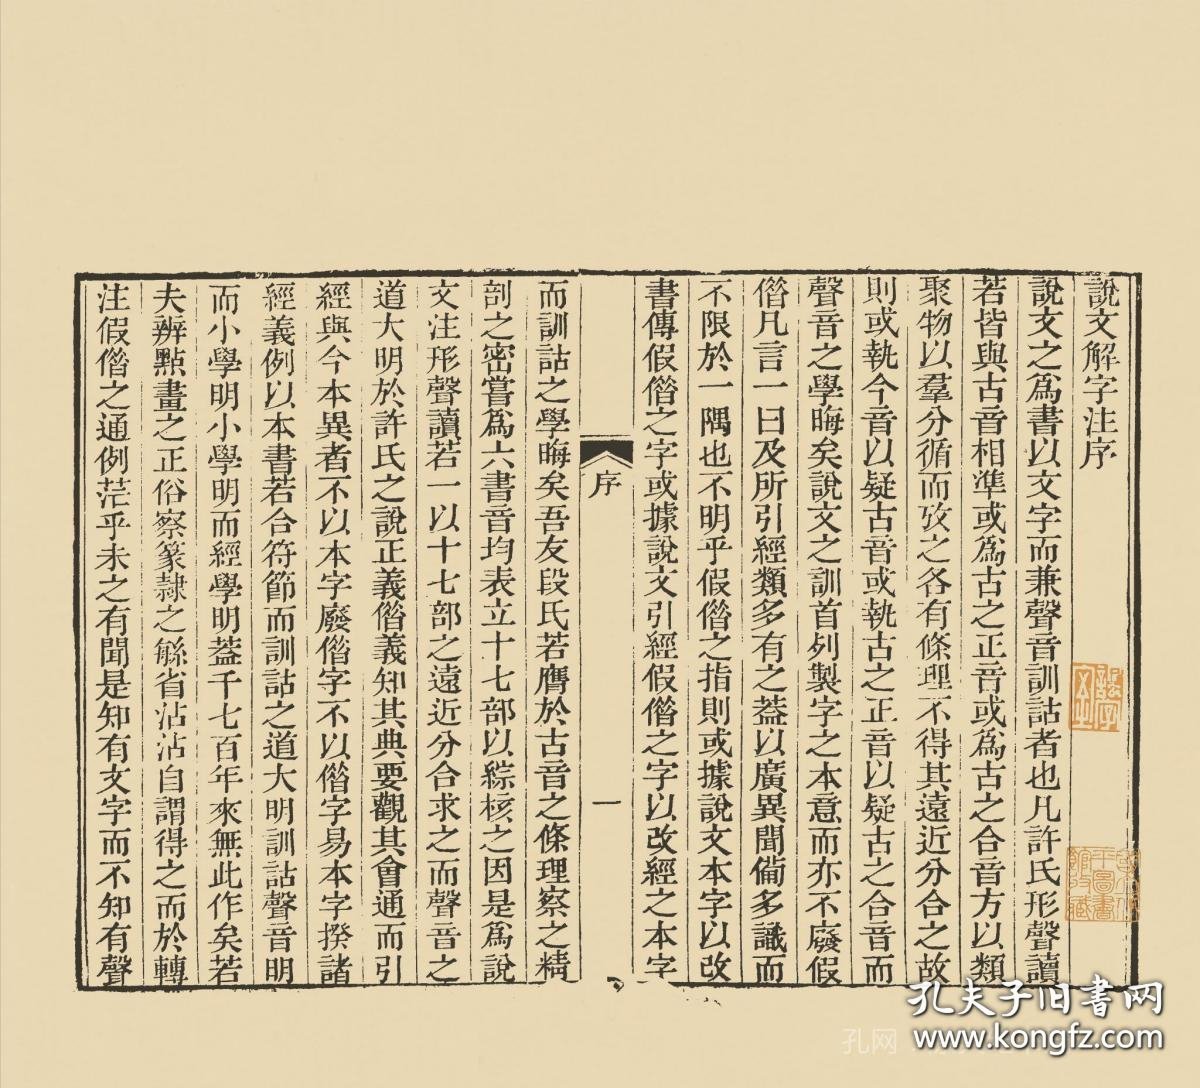 說文解字注序
說文之爲書以文字而兼聲音訓詁者也凡許氏形聲讀
若皆與古音相準或爲古之正音或爲古之合音方以類
聚物以羣分循而攷之各有條理不得其遠近分合之故
則或執今音以疑古音或執古之正音以疑古之合音而
聲音之學晦矣說文之訓首列製字之本意而亦不廢假
借凡言一曰及所引經類多有之葢以廣異聞備多識而
不限於一隅也不明乎假借之指則或據說文本字以改
書傳假借之字或據說文引經假借之字以改經之本字
序
一
而訓詁之學晦矣吾友段氏若膺於古音之條理察之精
剖之密嘗爲六書音均表立十七部以綜核之因是爲說
文注形聲讀若一以十七部之遠近分合求之而聲音之
道大明於許氏之說正義借義知其典要觀其會通而引
經與今本異者不以本字廢借字不以借字易本字揆諸
經義例以本書若合符節而訓詁之道大明訓詁聲音明
而小學明小學明而經學明葢千七百年來無此作矣若
夫辨點畫之正俗察篆隸之緐省沾沾自謂得之而於轉
注假借之通例茫乎未之有聞是知有文字而不知有聲
孔夫子旧书网
www.kongfz.com